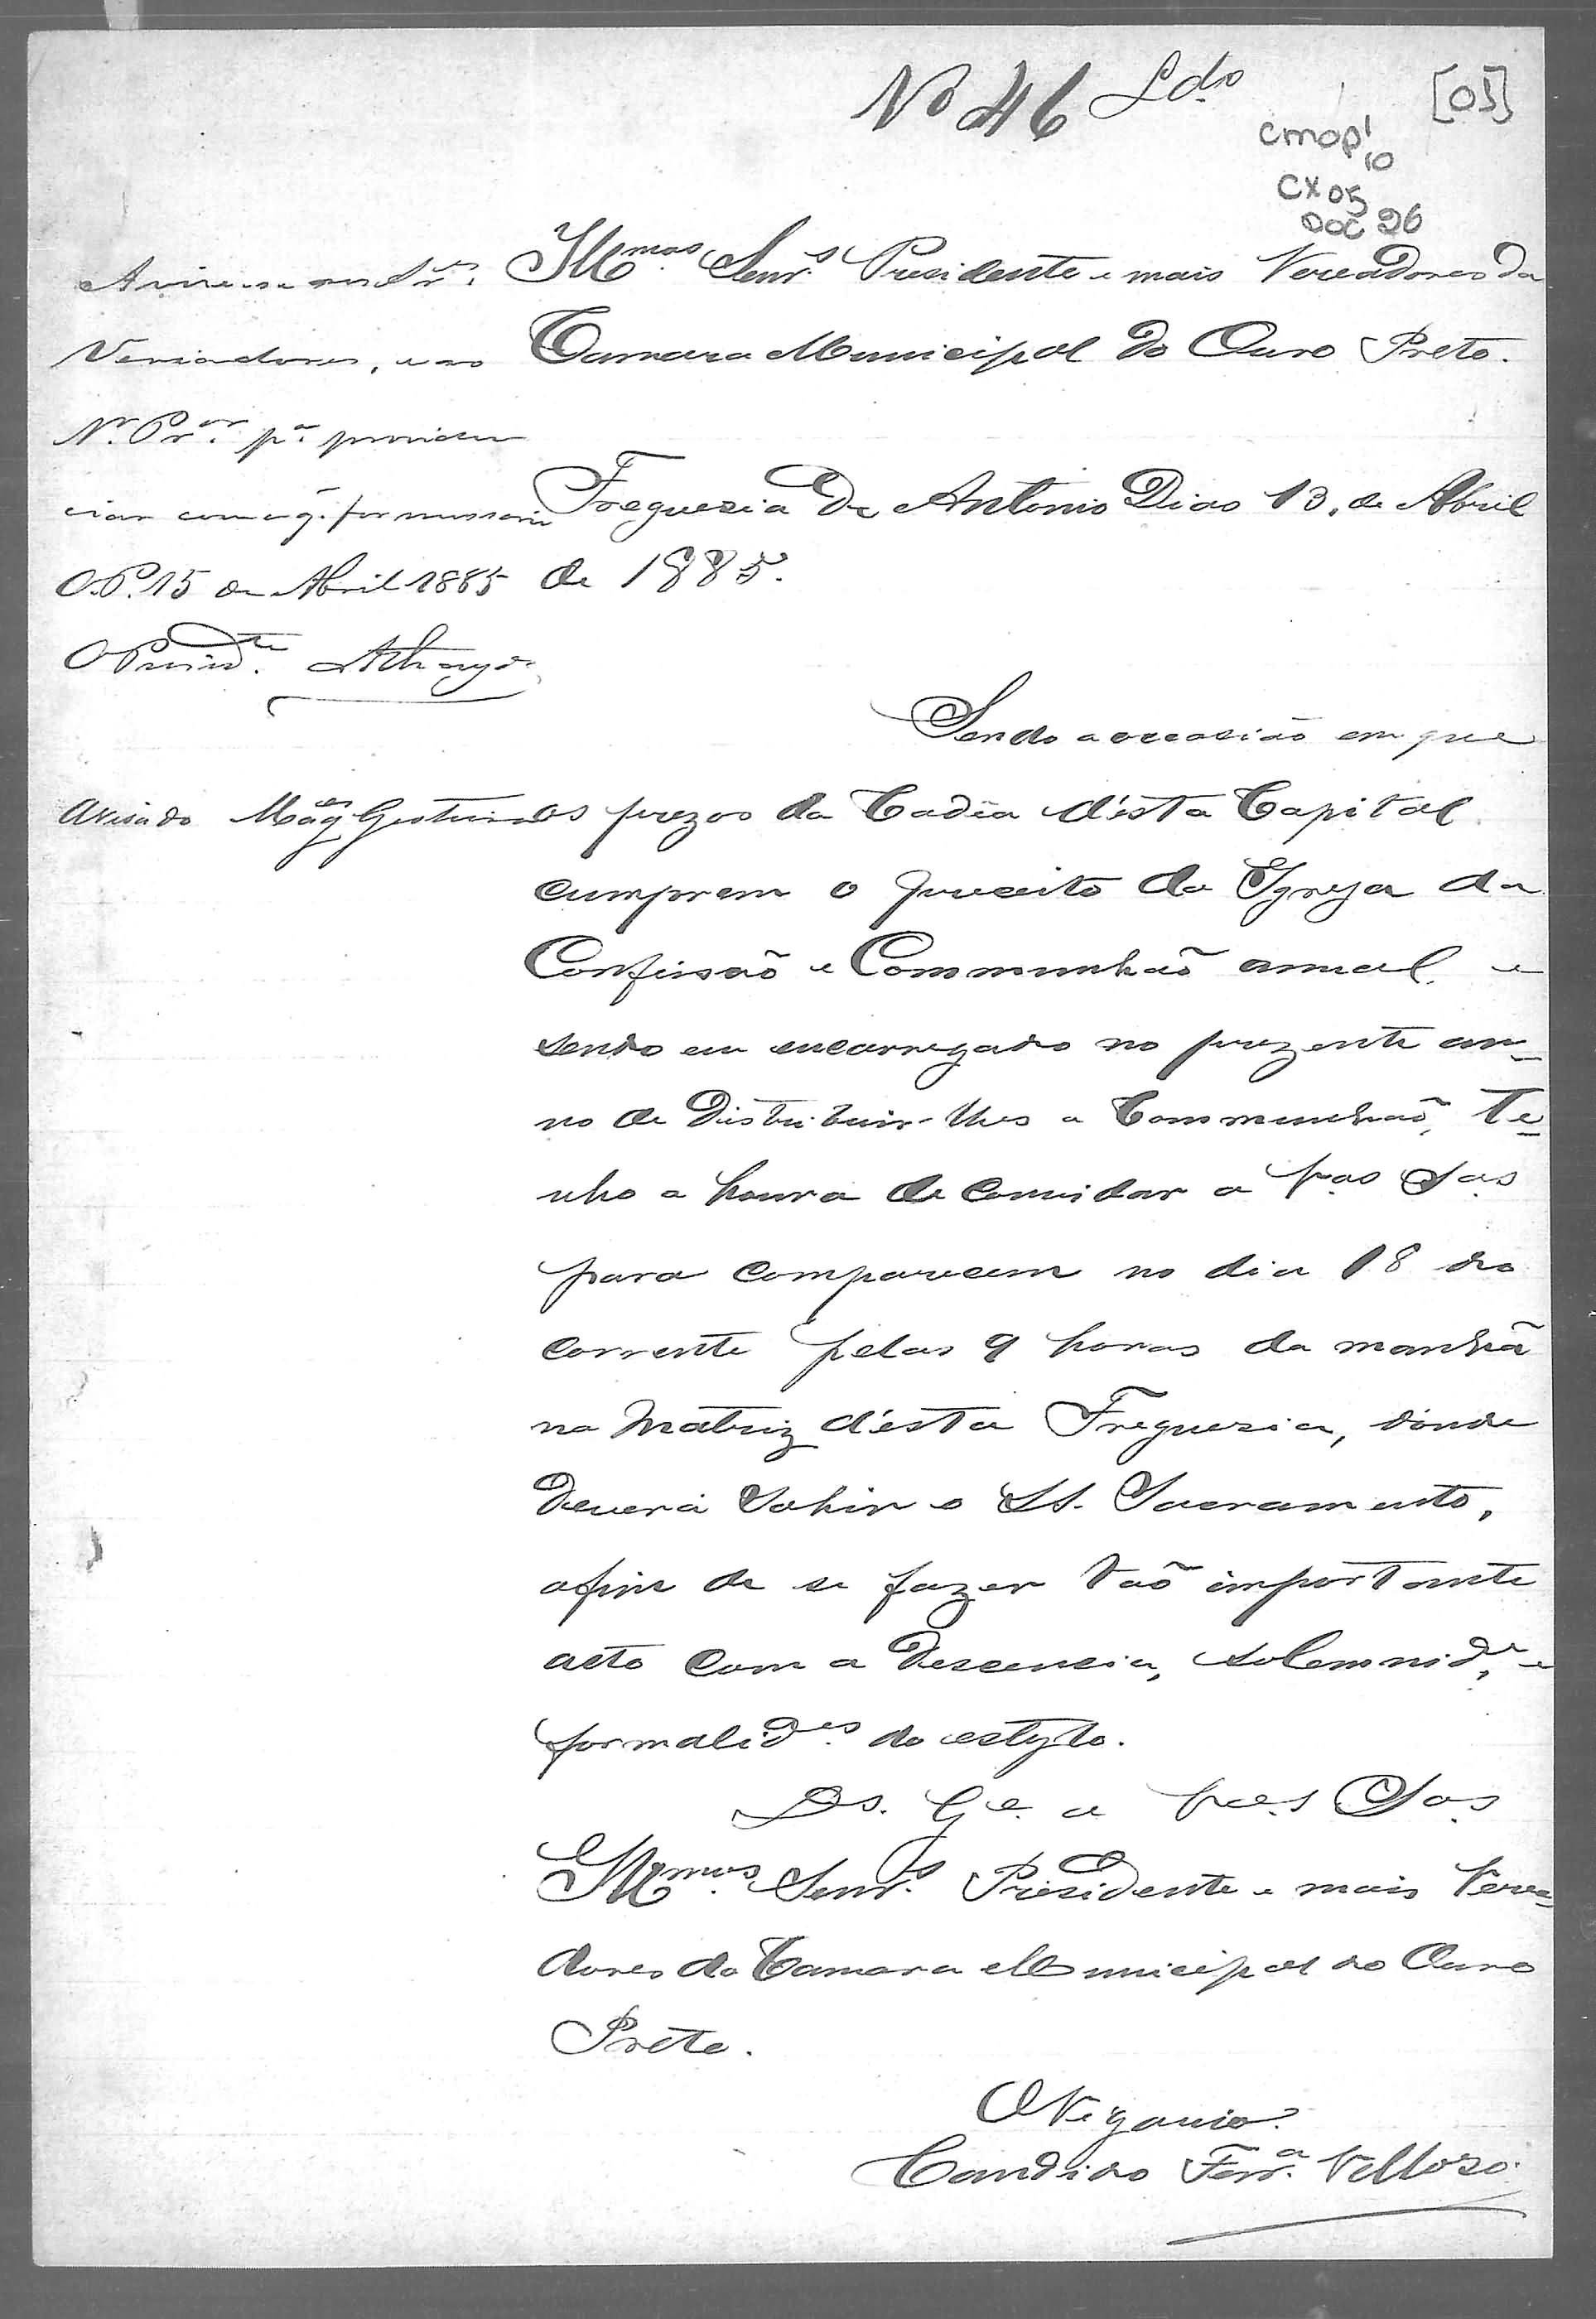 Nº 46 Ldo
[05]
CMOP
10
CX 05
DOC 26
Illmos. Senrs. Presidente e mais Vereadores da
Camara Municipal do Ouro Preto.
Freguezia de Antonio Dias 13, de Abril
de 1885.
Avise-se aos Srs.
Veriadores, e ao
Pror. pa. providen
ciar com o q. for
O.P. 15 de Abril 1885
O Presidte. Athayde
avisado
Sendo a occasião em que
os prezos da Cadêa d'ésta Capital
cumprem o preceito da Igreja da
Confissão e Communhaõ annual, e
sendo eu encarregado no prezente an-
no de distribuir-lhes a Communhaõ, te-
nho a honra de convidar a Vas Sas
para comparecem no dia 18 do
corrente pelas 9 horas da manhã
na Matriz d'ésta Freguezia, donde
deverá sahir o SS. Sacramento,
afim de se fazer taõ importante
acto com a descencia, solemnide. e
formalides. do estylo.
Ds. Ge. a Vas Sas
Illmos. Senrs. Presidente e mais Verea-
dores da Camara Municipal do Ouro
Preto.
O Vigario.
Candido Ferra. Velloso.